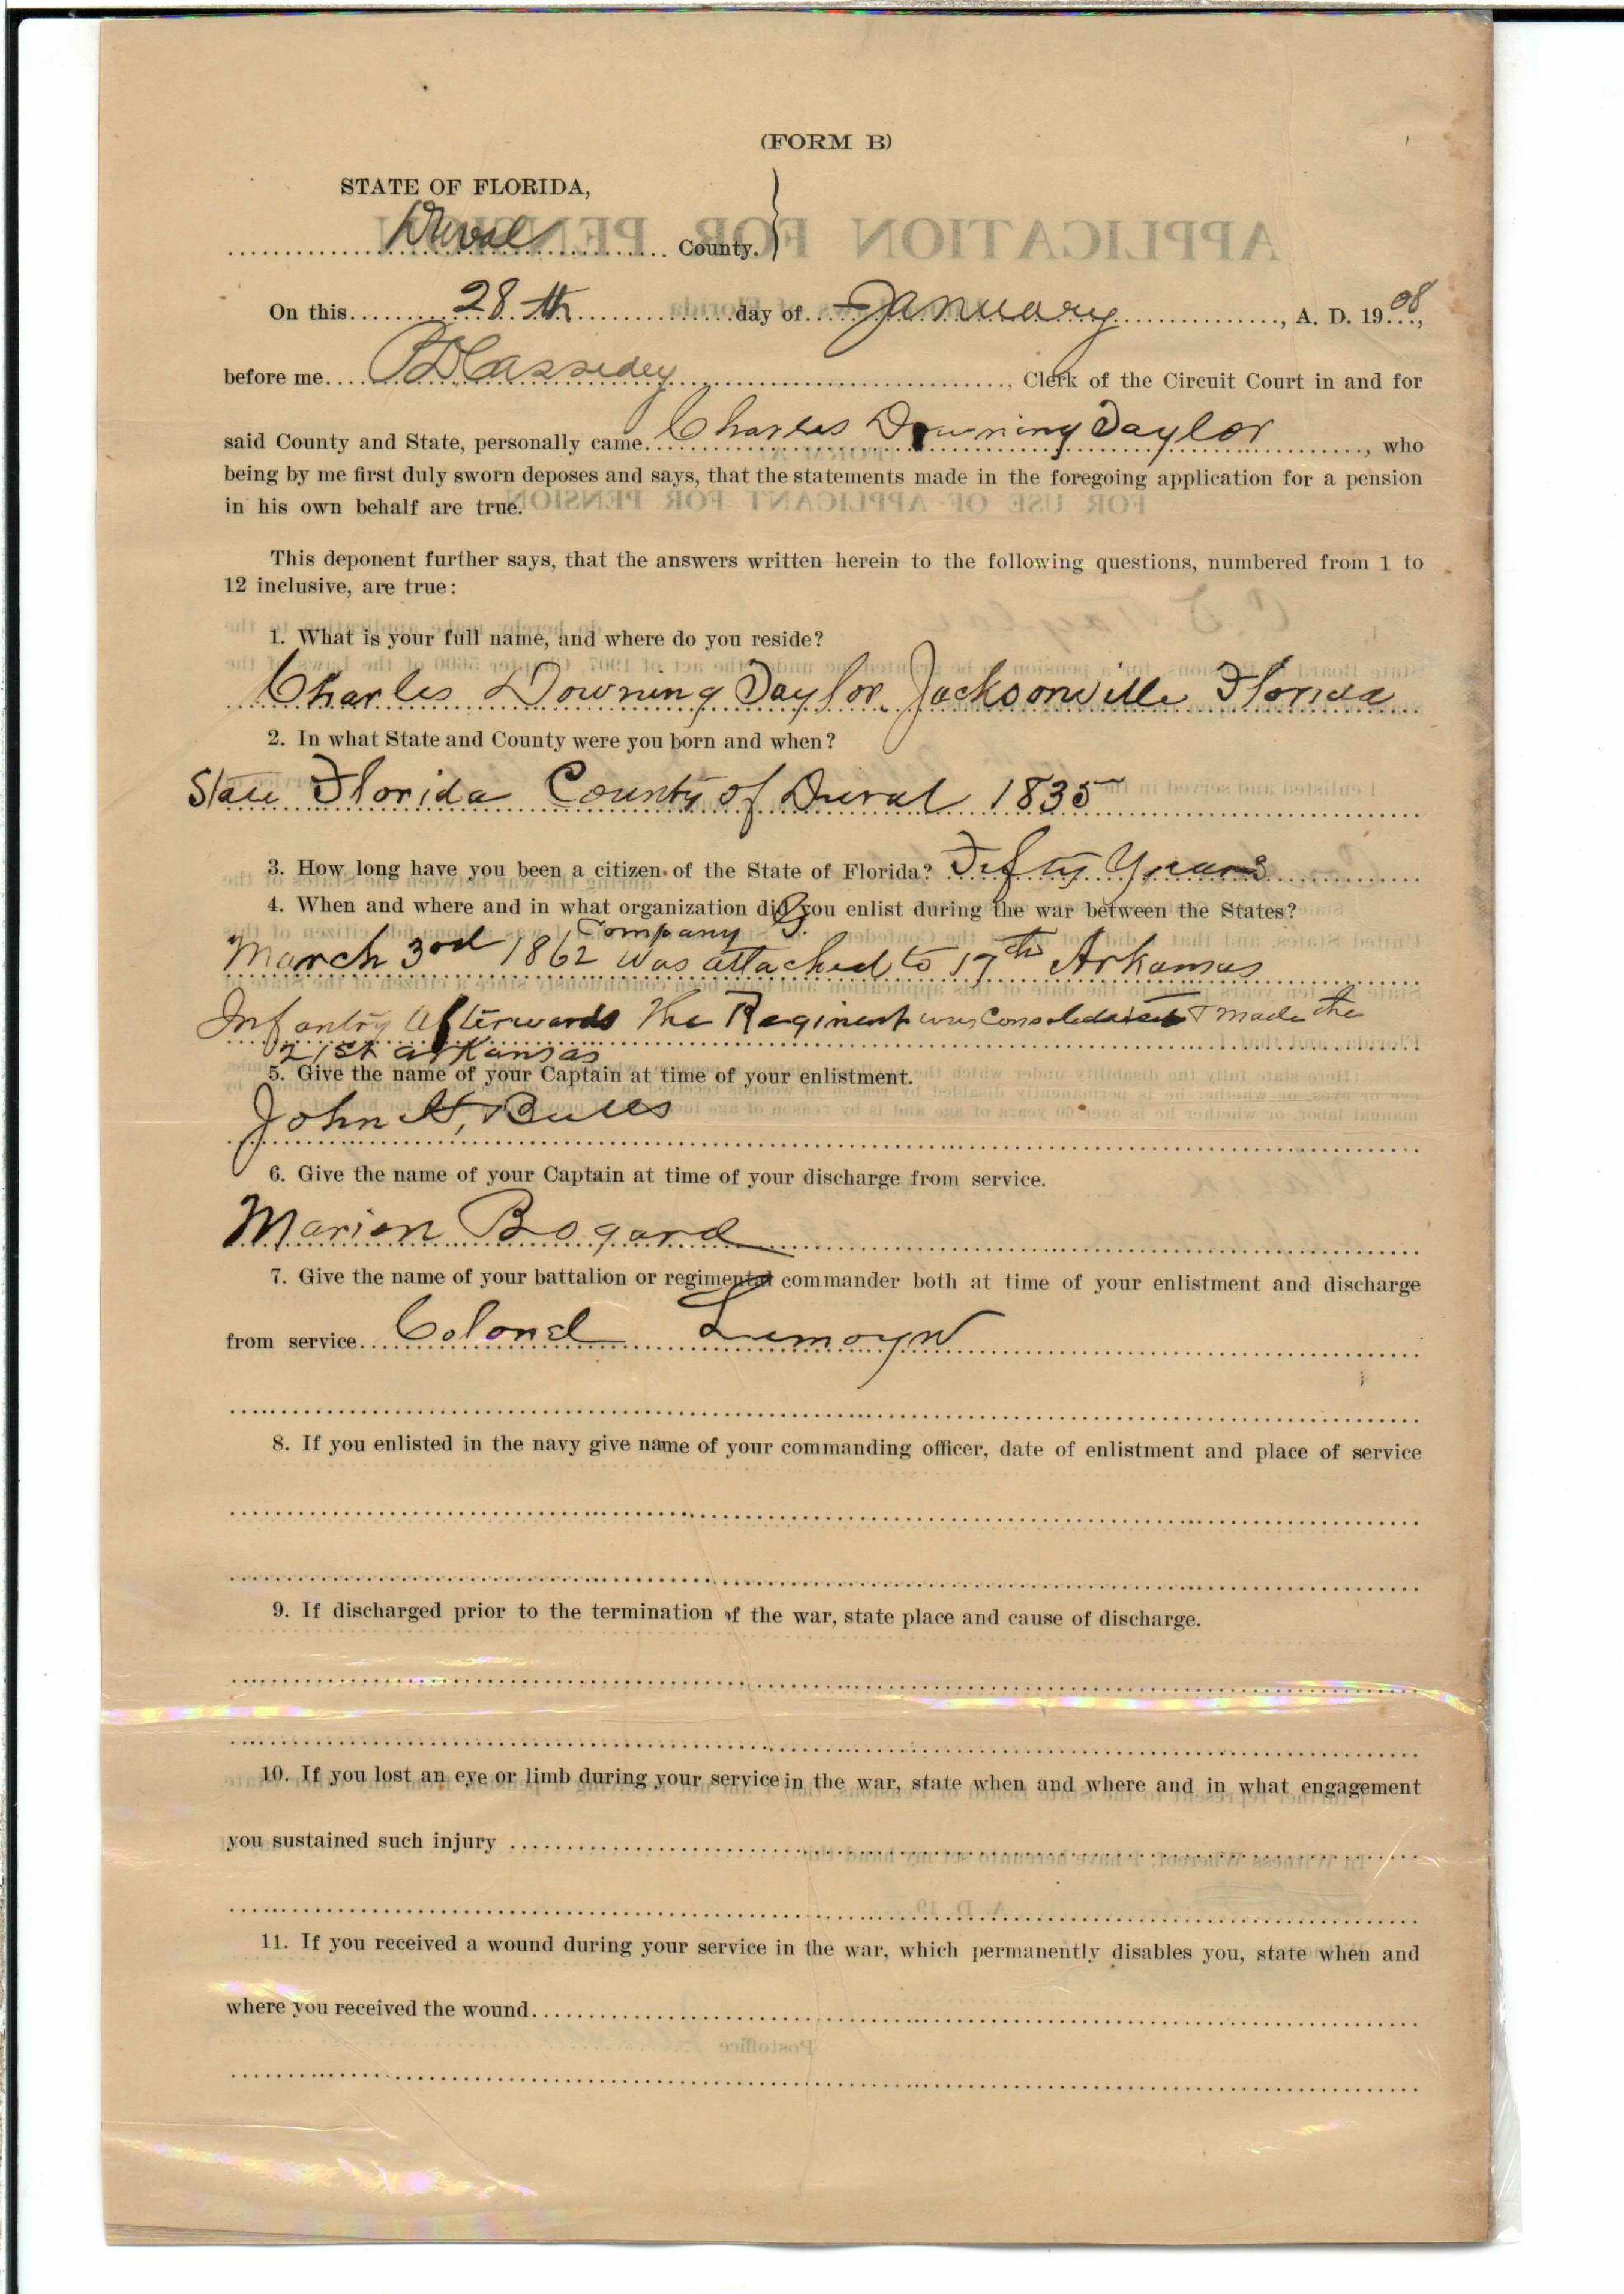 (FORM B)
STATE OF FLORIDA,
Duval County.
On this 28th day of January, A. D. 1908,
before me P D Cassidey, Clerk of the Circuit Court in and for
said County and State, personally came Charles Downing Taylor, who
being by me first duly sworn deposes and says, that the statements made in the foregoing application for a pension
in his own behalf are true.
This deponent further says, that the answers written herein to the following questions, numbered from 1 to
12 inclusive, are true:
1. What is your full name, and where do you reside?
Charles Downing Taylor Jacksonville Florida
2. In what State and County were you born and when?
State Florida County of Duval 1835
3. How long have you been a citizen of the State of Florida? Fifty Years
4. When and where and in what organization did you enlist during the war between the States?
Company G.
March 3rd 1862 was attached to 17th Arkansas
Infantry Afterwards the Regiment was Consolidated & made the
21st arkansas
5. Give the name of your Captain at time of your enlistment.
John H,
6. Give the name of your Captain at time of your discharge from service.
Marion Bogard
7. Give the name of your battalion or regimental commander both at time of your enlistment and discharge
from service Colonel
8. If you enlisted in the navy give name of your commanding officer, date of enlistment and place of service
9. If discharged prior to the termination of the war, state place and cause of discharge.
10. If you lost an eye or limb during your service in the war, state when and where and in what engagement
you sustained such injury
11. If you received a wound during your service in the war, which permanently disables you, state when and
where you received the wound